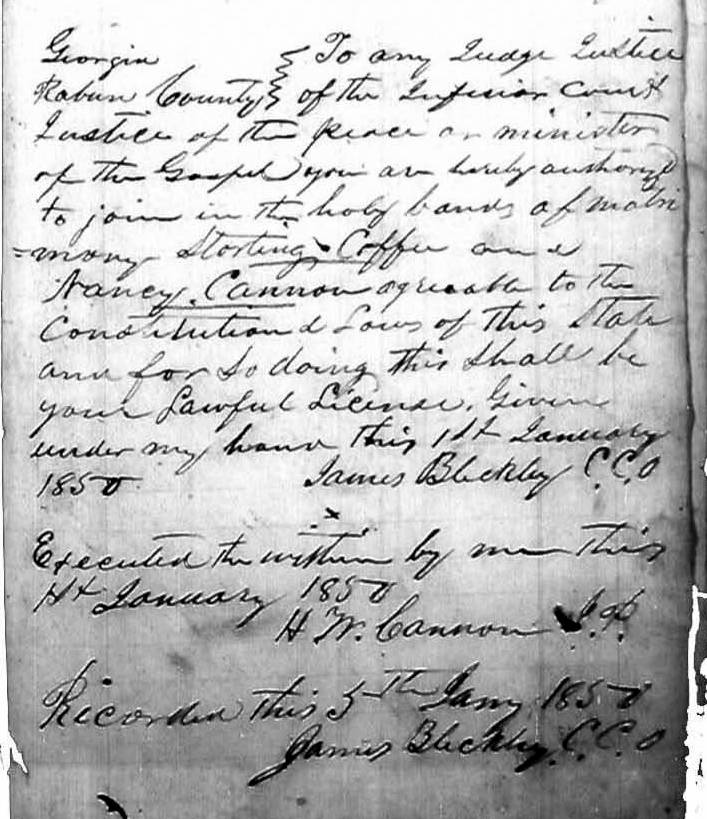 Georgia { To any Judge Justice
Rabun County { of the Inferior Court
Justice of the peace or minister
of the Gospel you are hereby authorized
to join in the holy bands of matri
=mony Storting Coffee and
Nancy Cannon agreeable to the
Constitution & Laws of this State
and for so doing this shall be
your Lawful License. Given
under my hand this 1st January
1850 James Bleckley C.C.O
Executed the within by me this
1st January 1850
H W. Cannon J.P.
Recorded this 5th Jany 1850
James Bleckley C.C.O